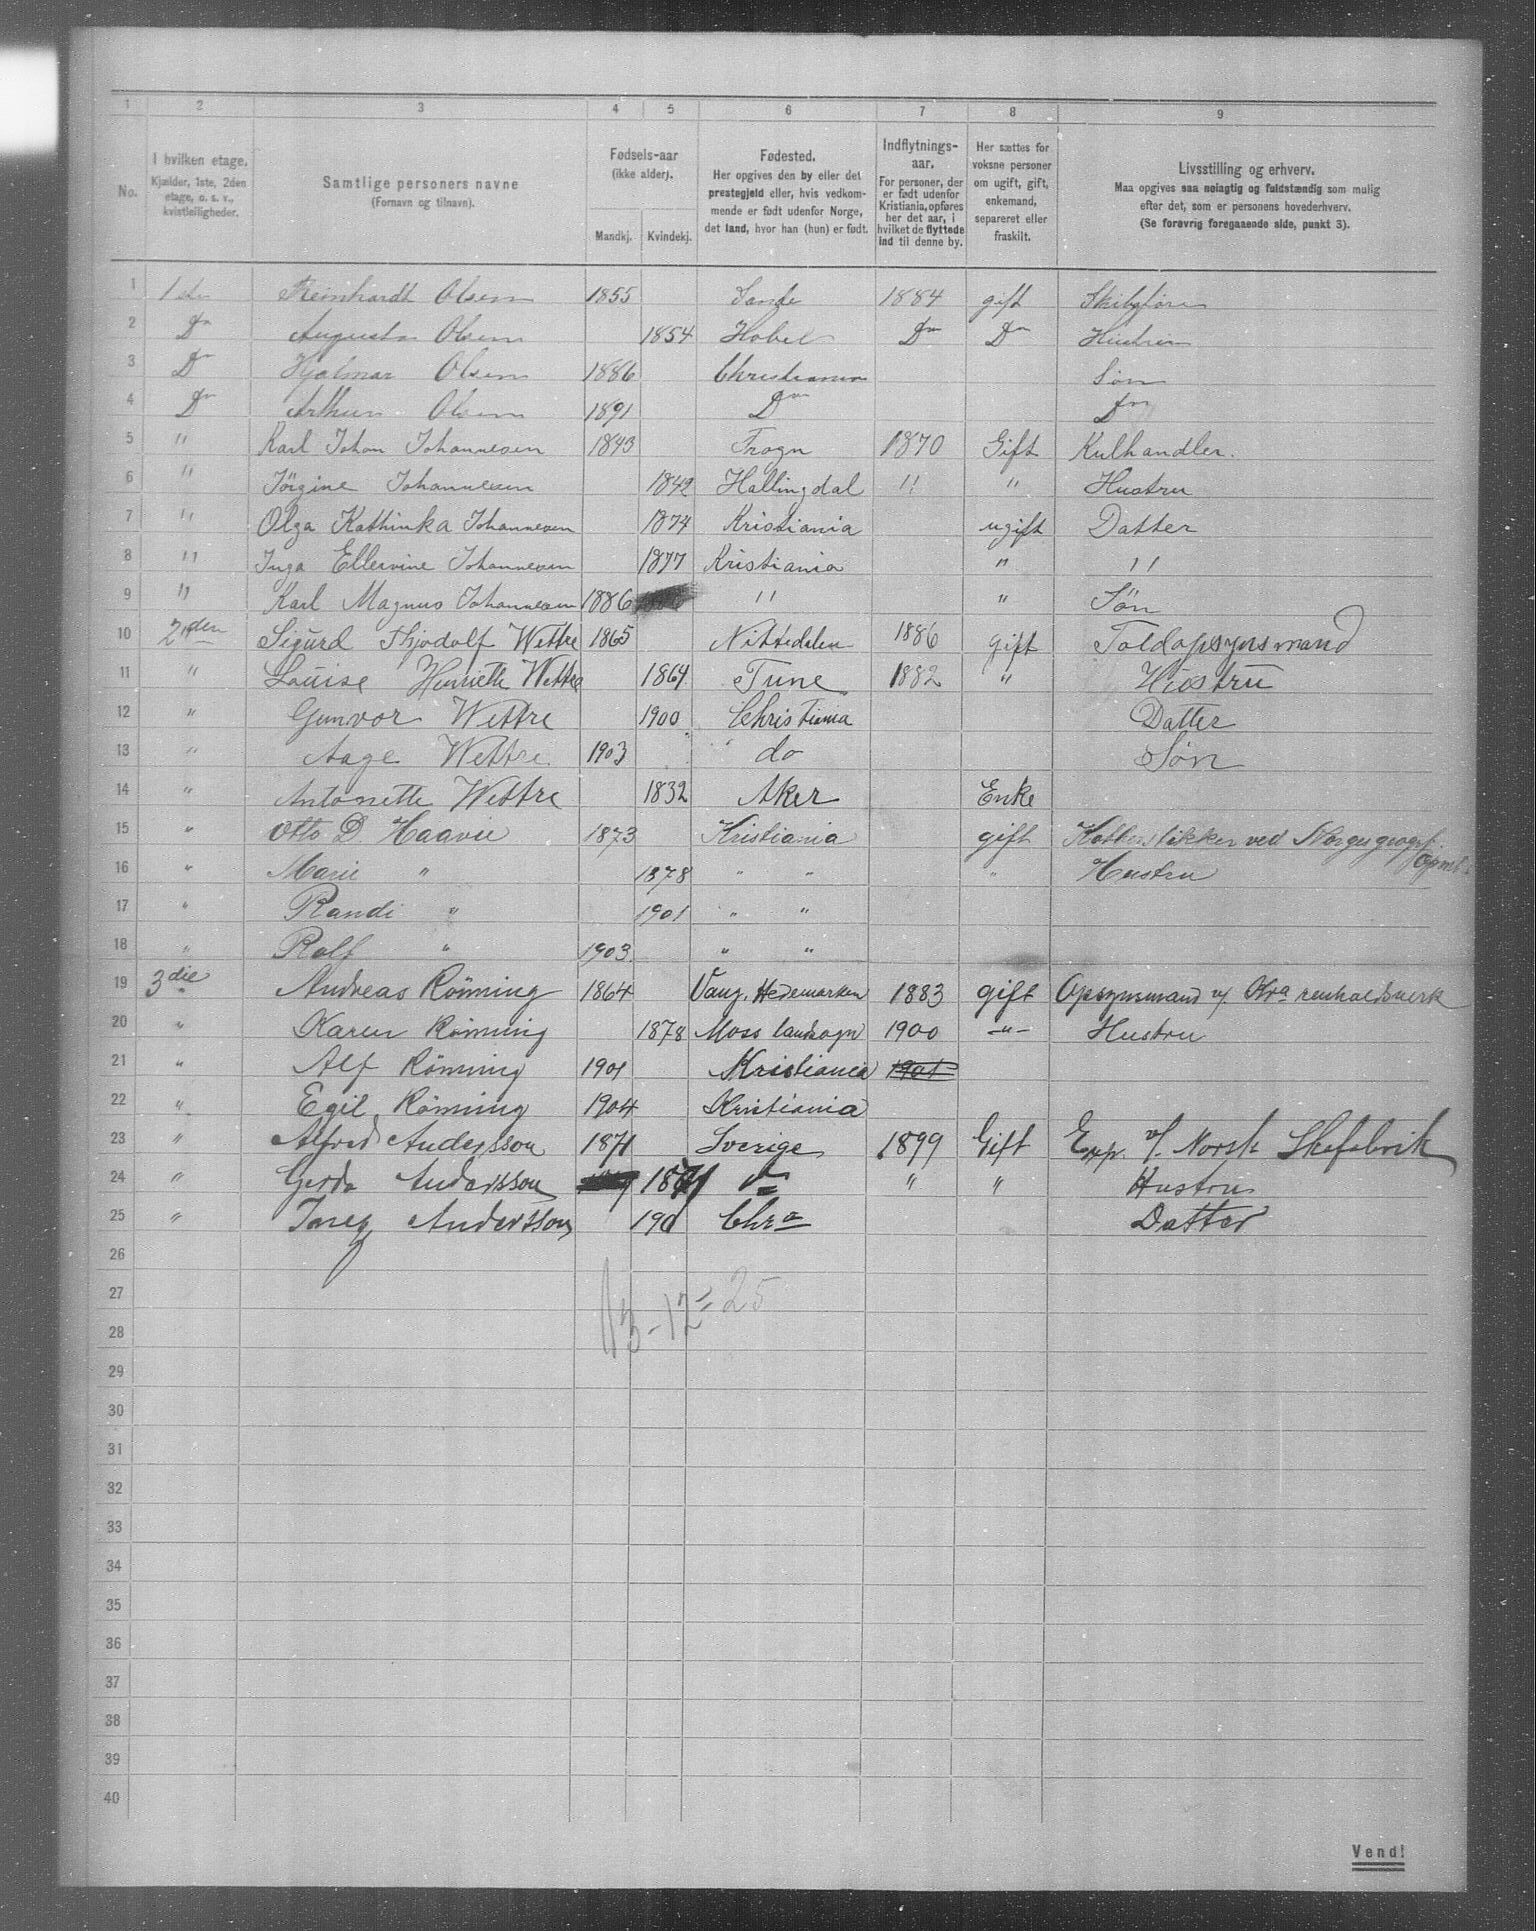 1 2 3 4 5 6 7 8 9
No.
I hvilken etage.
Kjælder, 1ste, 2den
etage, o. s. v.,
kvistleiligheder.
Samtlige personers navne
(Fornavn og tilnavn).
Fødsels-aar
(ikke alder).
Mandkj. Kvindekj.
Fødested.
Her opgives den by eller det
prestegjeld eller, hvis vedkom-
mende er født udenfor Norge,
det land, hvor han (hun) er født.
Indflytnings-
aar.
For personer, der
er født udenfor
Kristiania, opføres
her det aar, i
hvilket de flyttede
ind til denne by.
Her sættes for
voksne personer
om ugift, gift,
enkemand,
separeret eller
fraskilt.
Livsstilling og erhverv.
Maa opgives saa nøiagtig og fuldstændig som mulig
efter det, som er personens hovederhverv.
(Se forøvrig foregaaende side, punkt 3).
1 1 etr Reinhardt Olsen 1855 Sande 1884 gift Skibsfører
2 Do Augusta Olsen 1854 Hobel Do Do Hustru
3 Do Hjalmar Olsen 1886 Christiania Søn
4 Do Arthur Olsen 1891 Do Do
5 " Karl Johan Johannesen 1843 Frogn 1870 Gift Kulhandler.
6 " Jörgine Johannesen 1842 Hallingdal " " Hustru
7 " Olga Kathinka Johannesen 1874 Kristiania ugift Datter
8 " Inga Ellervine Johannesen 1877 Kristiania " "
9 " Karl Magnus Johannesen 1886 " " Sön
10 2den Sigurd Thjodolf Wettre 1865 Nittedalen 1886 gift Toldopsynsmand
11 " Louise Henriette Wettre 1864 Tune 1882 " Hustru
12 " Gunvor Wettre 1900 Christiania Datter
13 " Aage Wettre 1903 do Søn
14 " Antonette Wettre 1832 Aker Enke
15 " Otto D. Haavie 1873 Kristiania gift Kobberstikker ved Norges geogrf. Opml.
16 " Marie " 1878 " " " Hustru
17 " Randi " 1901 " "
18 " Rolf " 1903 " "
19 3die Andreas Rönning 1864 Vang, Hedemarken 1883 gift Opsynsmand v/ Kra renholdsverk
20 " Karen Rönning 1878 Moss landsogn 1900 -"- Hustru
21 " Alf Rönning 1901 Kristiania 1901
22 " Egil Rönning 1904 Kristiania
23 " Alfred Andersson 1871 Sverige 1899 Gift Exp. v/. Norsk Skofabrik
24 " Gerda Andersson 1871 Do " " Hustru
25 " Andersson 190 Chra Datter
26
27
13-12=25
28
29
30
31
32
33
34
35
36
37
38
39
40
Vend!